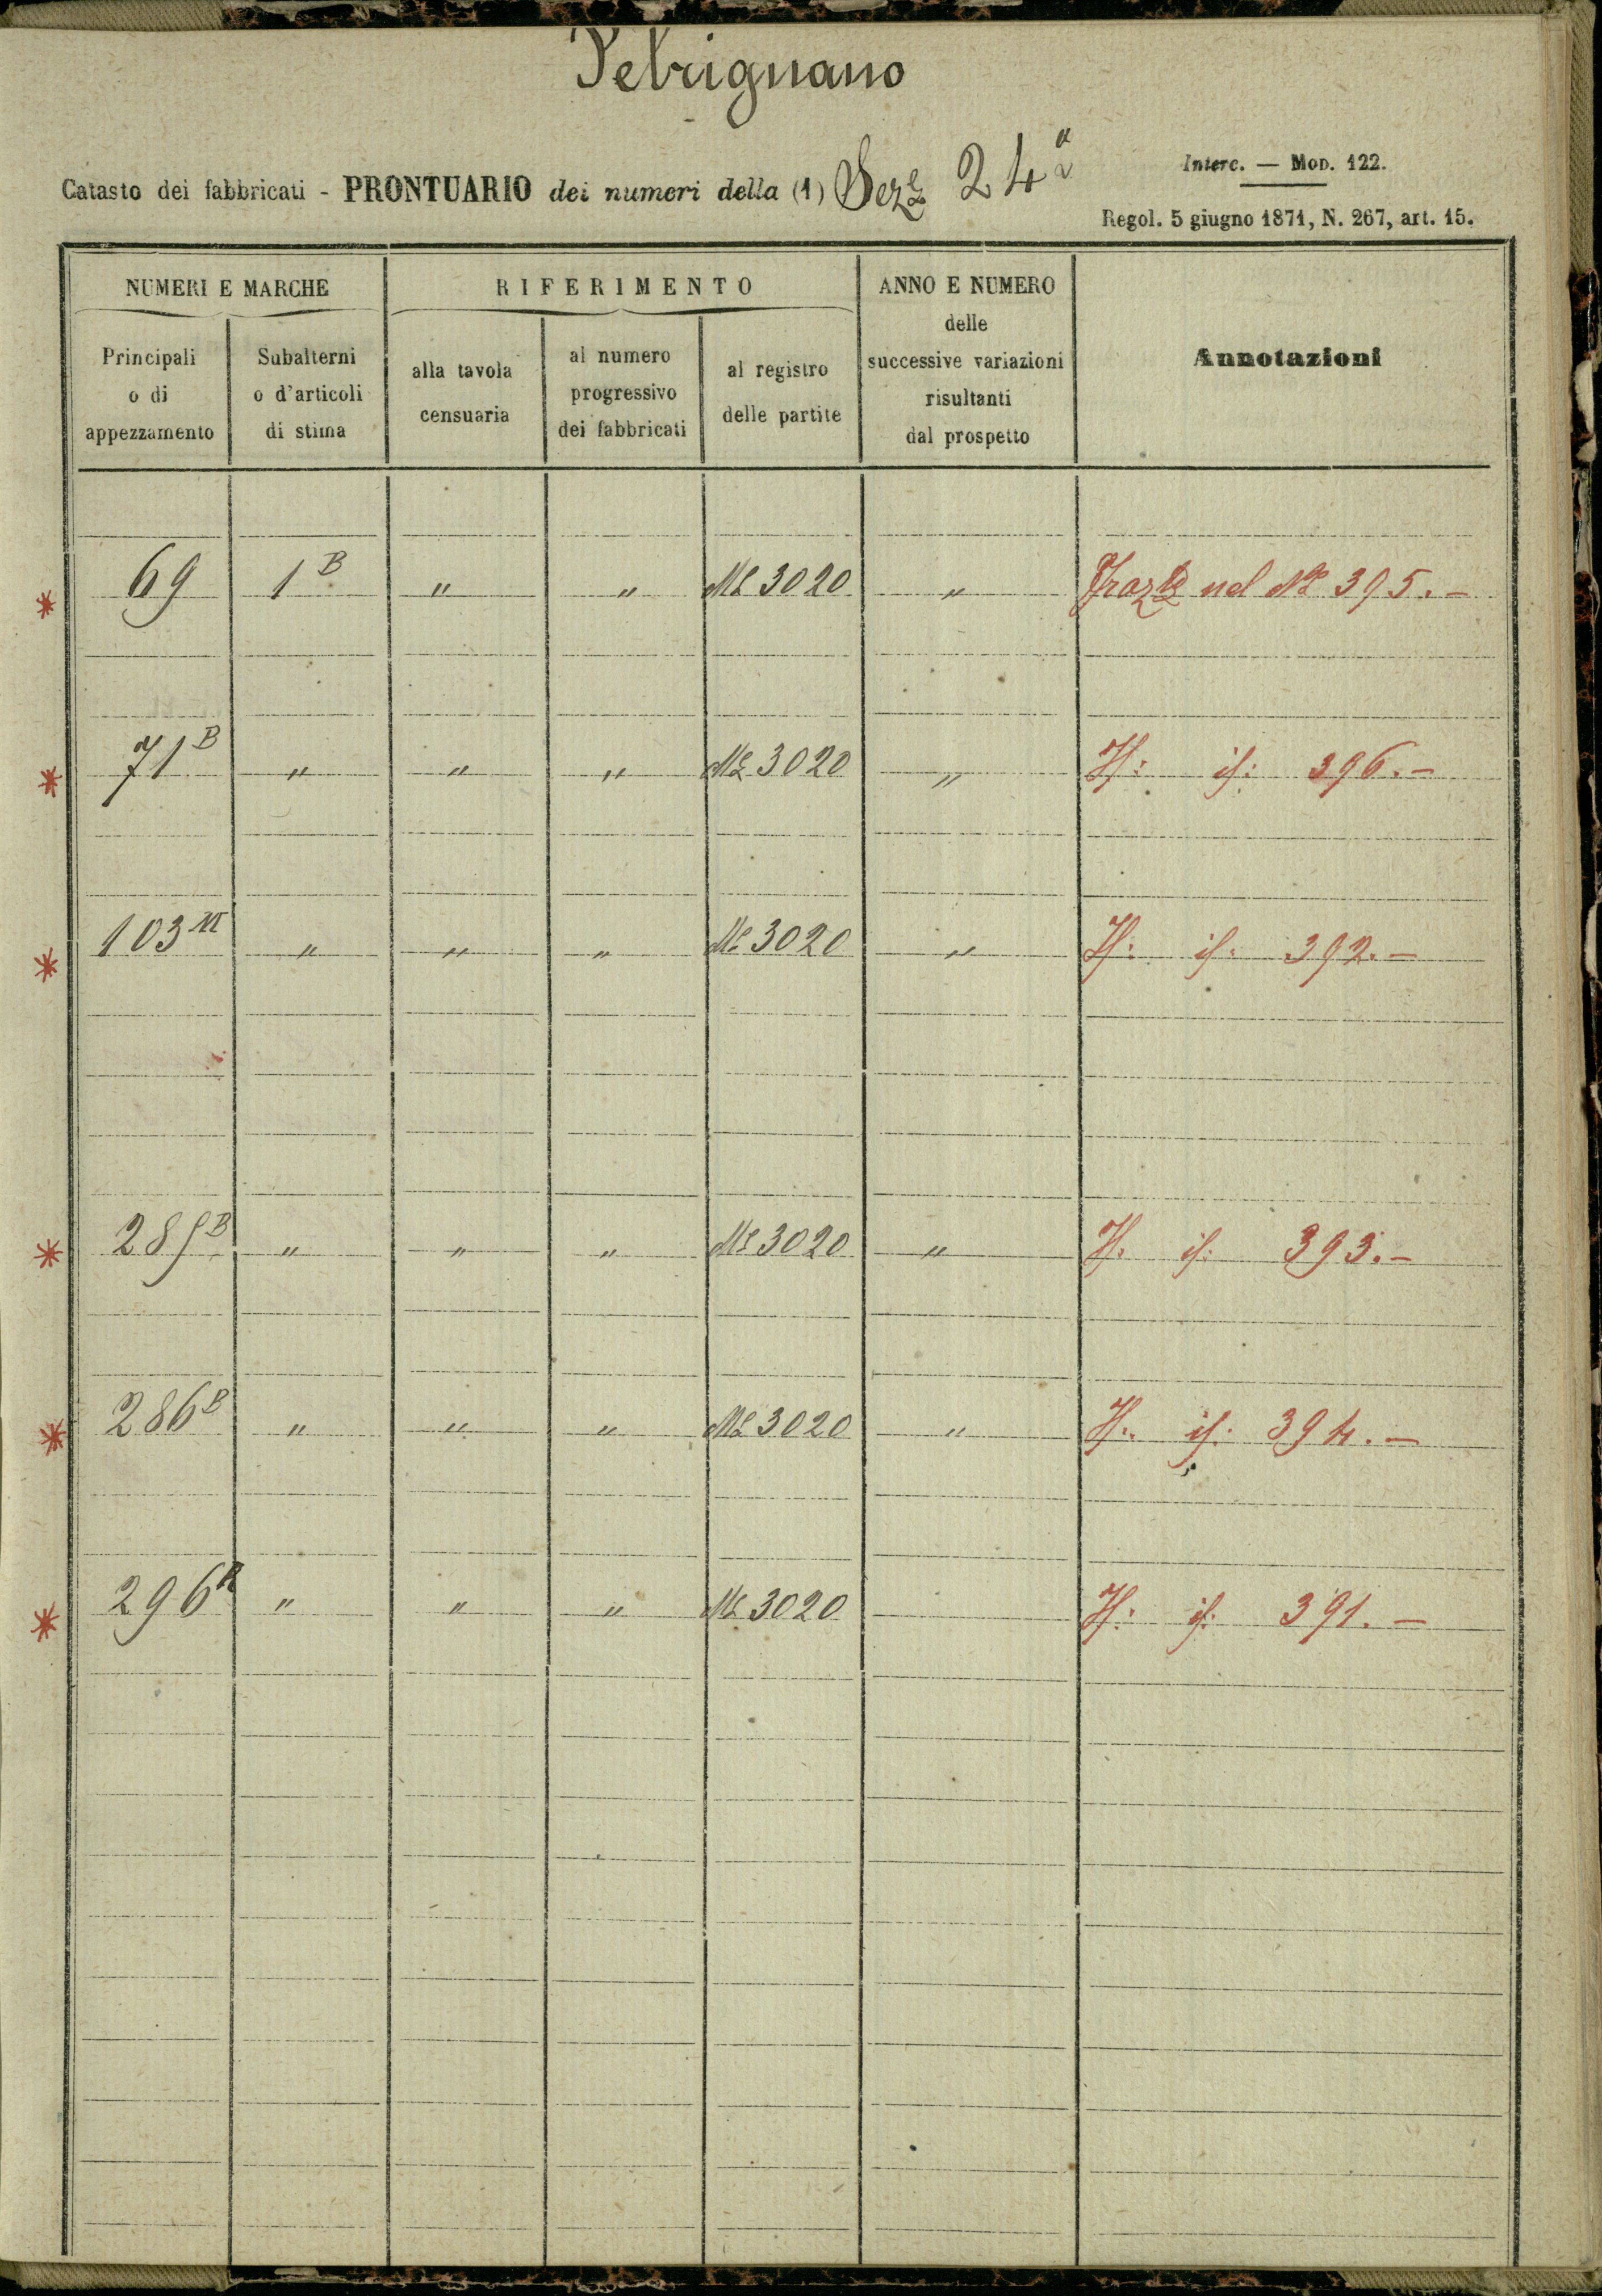 Petrignano
Catasto dei fabbricati - PRONTUARIO dei numeri della (1) Seze 24a
Interc. — Mod. 122.
Regol. 5 giugno 1871, N. 267, art. 15.
NUMERI E MARCHE
Principali o di appezzamento
Subalterni o d'articoli di stima
RIFERIMENTO
alla tavola censuaria
al numero progressivo dei fabbricati
al registro delle partite
ANNO E NUMERO delle successive variazioni risultanti dal prospetto
Annotazioni
* 69 1B " " 3020 " nel No 395. -
* 71B " " " 3020 " 396. -
* 103 " " " 3020 " 392. -
* " " " 3020 " 393. -
* 286B " " " 3020 " 394. -
* 296 " " " 3020 391. -